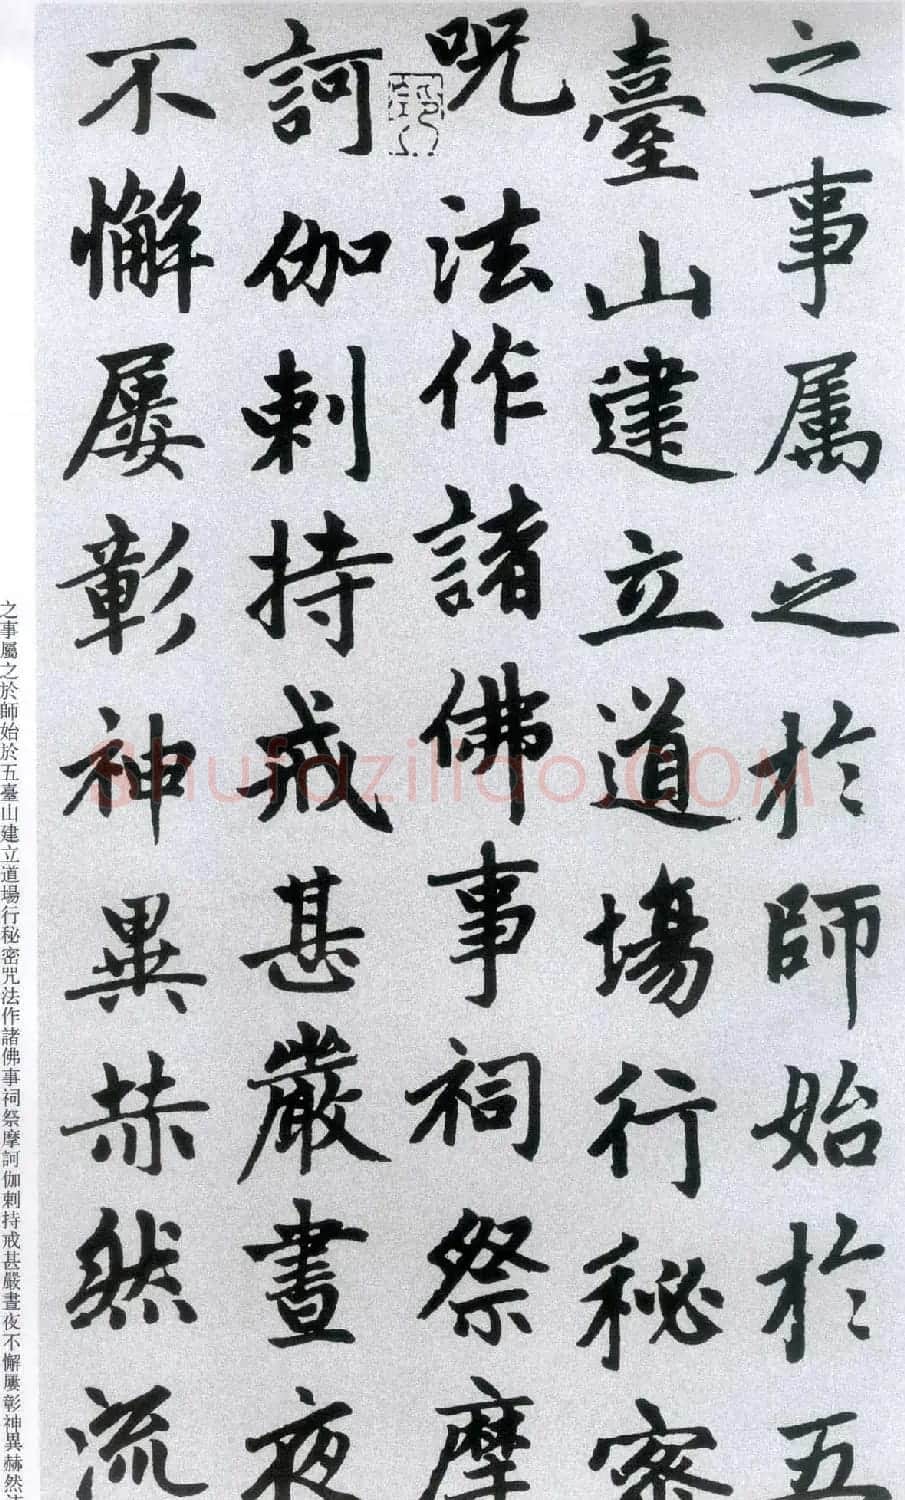 之事属之於師始於五
臺山建立道場行秘密
呪法作諸佛事祠祭摩
訶伽剌持戒甚嚴晝夜
不懈屢彰神異赫然流
之事屬之於師始於五臺山建立道場行秘密咒法作諸佛事祠祭摩訶伽剌持戒甚嚴晝夜不懈屢彰神異赫然
Shufaziliao.COM